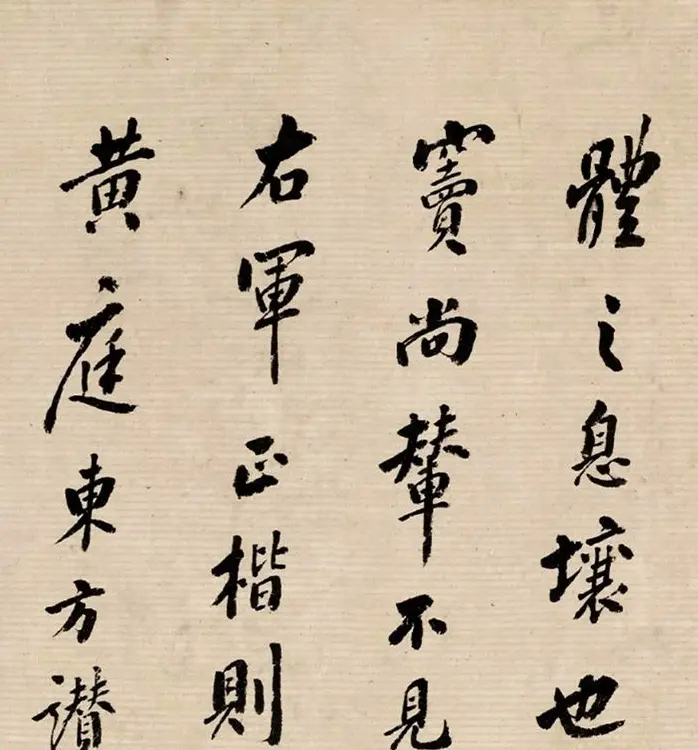 體之息壤也
竇尚輦不見
右軍正楷則
黃庭東方讃